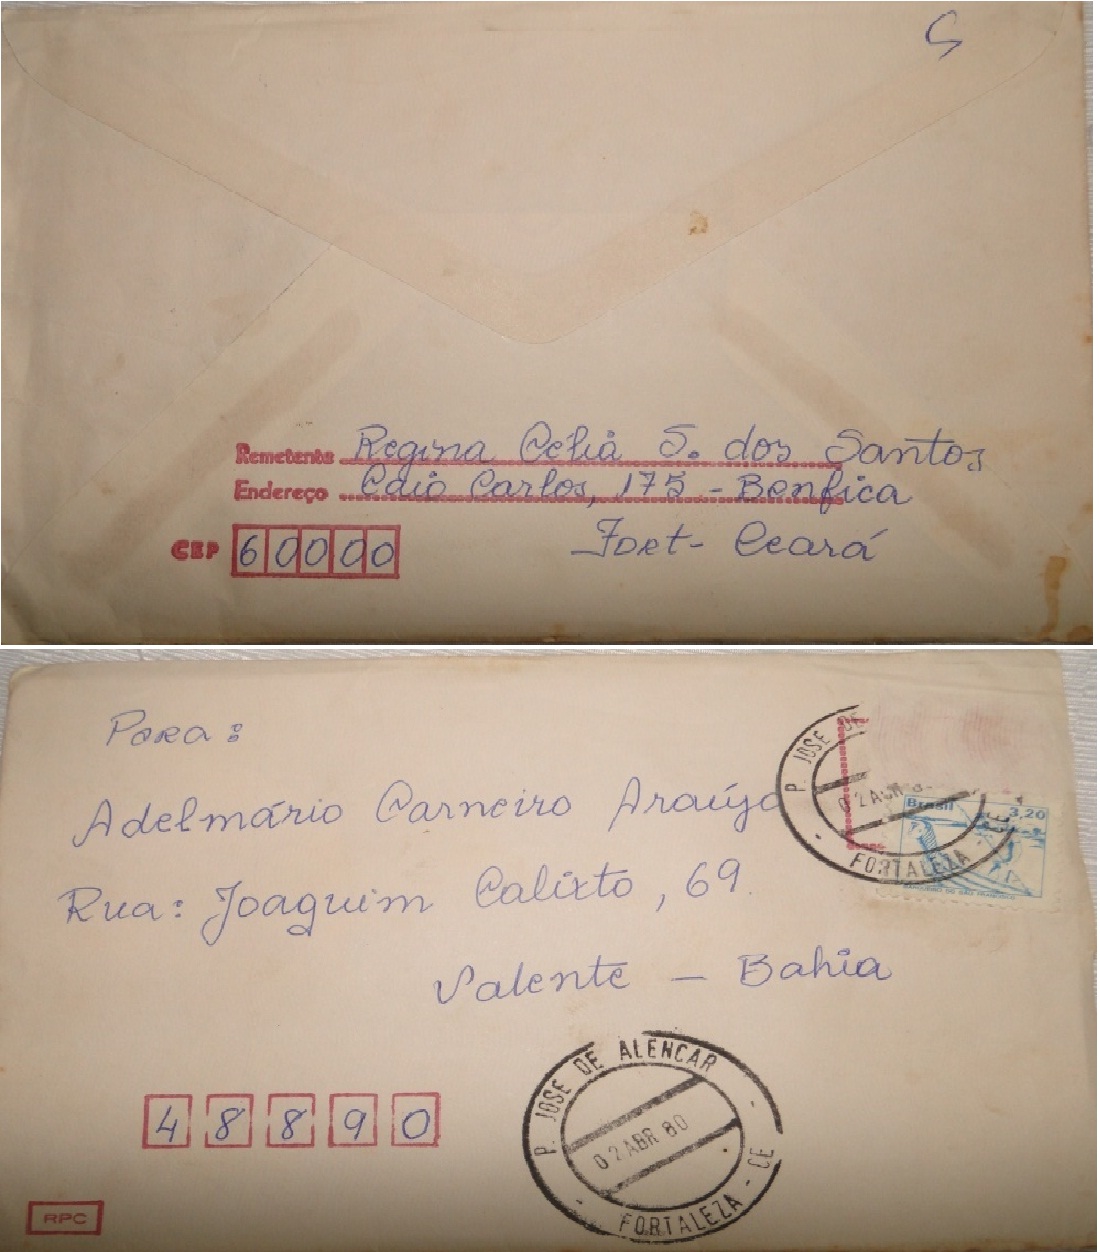 Remetente Regina Celiá S. dos Santos
Endereço Caio Carlos, 175 - Benfica
CEP 60000 Fort - Ceará
Para:
P. JOSE DE
02 ABR 8
Brasil 3,20
FORTALEZA - CE
Adelmário Carneiro Araújo
Rua: Joaquim Calixto, 69.
Valente - Bahia
P. JOSE DE ALENCAR
02 ABR 80
FORTALEZA - CE
48890
RPC